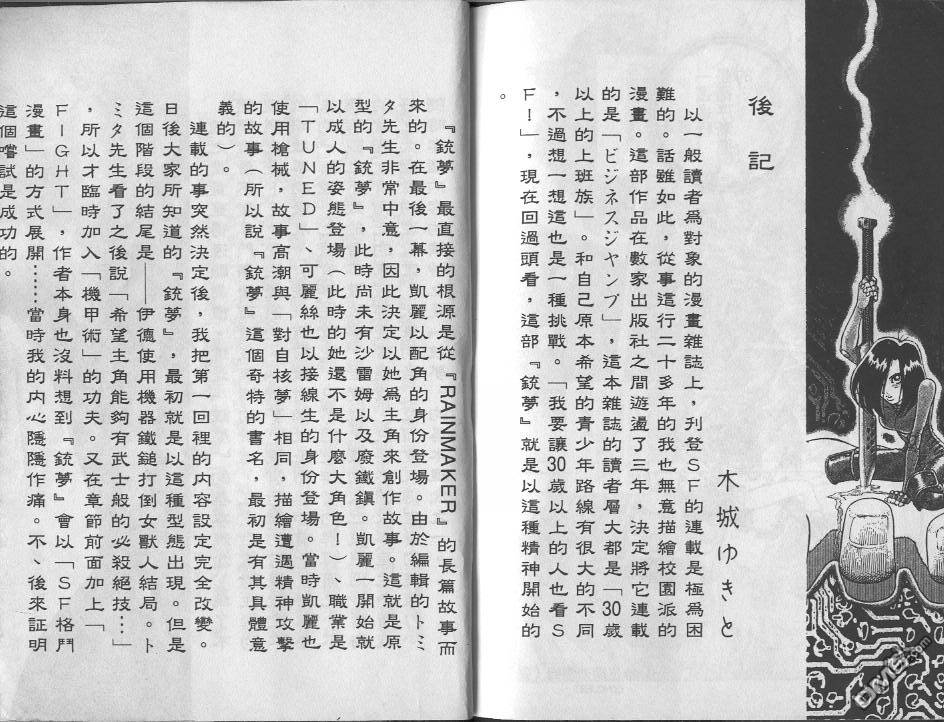 後記
木城ゆきと
以一般讀者為對象的漫畫雜誌上，刊登ＳＦ的連載是極為困
難的。話雖如此，從事這行二十多年的我也無意描繪校園派的
漫畫。這部作品在數家出版社之間遊盪了三年，決定將它連載
的是「ビジネスジャンプ」，這本雜誌的讀者層大都是「30歲
以上的上班族」。和自己原本希望的青少年路線有很大的不同
，不過想一想這也是一種挑戰。「我要讓30歲以上的人也看Ｓ
Ｆ！」，現在回過頭看，這部『銃夢』就是以這種精神開始的
。
『銃夢』最直接的根源是從『RAINMAKER』的長篇故事而
來的。在最後一幕，凱麗以配角的身份登場。由於編輯的トミ
タ先生非常中意，因此決定以她為主角來創作故事。這就是原
型的『銃夢』，此時尚未有沙雷姆以及廢鐵鎮。凱麗一開始就
以成人的姿態登場（此時的她還不是什麼大角色！）、職業是
「ＴＵＮＥＤ」、可麗絲也以接線生的身份登場。當時凱麗也
使用槍械，故事高潮與「對自核夢」相同，描繪遭遇精神攻擊
的故事（所以說『銃夢』這個奇特的書名，最初是有其具體意
義的）。
連載的事突然決定後，我把第一回裡的內容設定完全改變。
日後大家所知道的『銃夢』，最初就是以這種型態出現。但是
這個階段的結尾是——伊德使用機器鐵鎚打倒女獸人結局。ト
ミタ先生看了之後說「希望主角能夠有武士般的必殺絕技…」
，所以才臨時加入「機甲術」的功夫。又在章節前面加上「
ＦＩＧＨＴ」，作者本身也沒料想到『銃夢』會以「ＳＦ格鬥
漫畫」的方式展開……當時我的內心隱隱作痛。不、後來証明
這個嚐試是成功的。